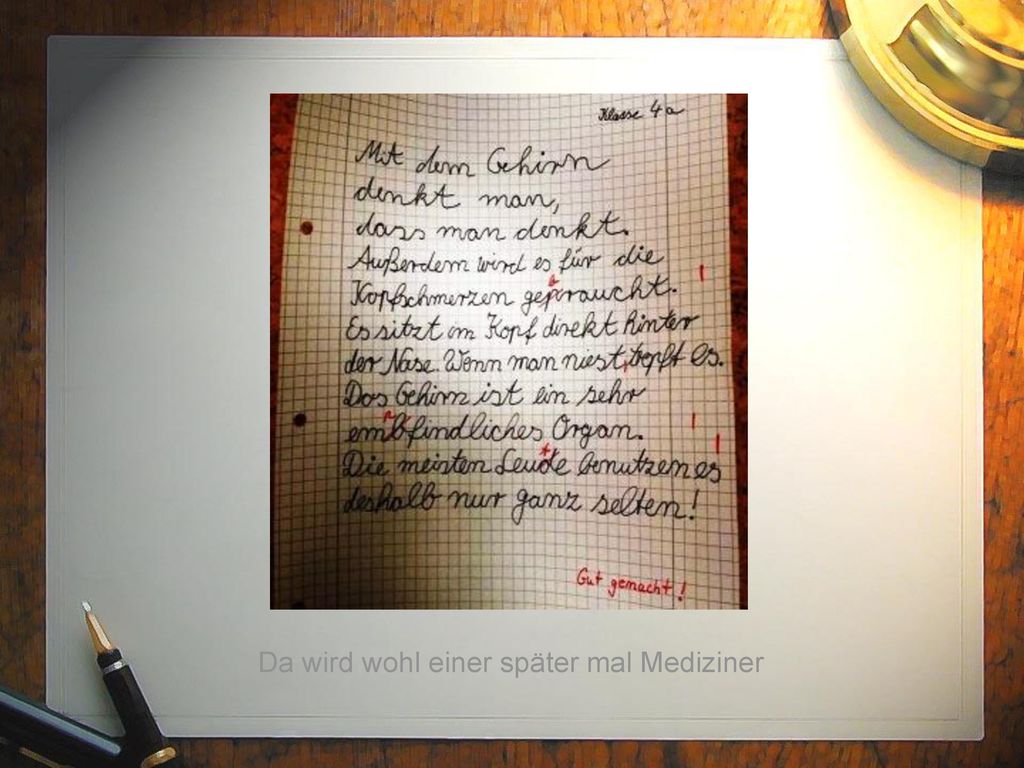 Klasse 4a
Mit dem Gehirn
denkt man,
dass man denkt.
Außerdem wird es für die
Kopfschmerzen gepraucht.
Es sitzt im Kopf direkt hinter
der Nase. Wenn man niest, tropft es.
Das Gehirn ist ein sehr
embfindliches Organ.
Die meisten Leude benutzen es
deshalb nur ganz selten!
Gut gemacht!
Da wird wohl einer später mal Mediziner